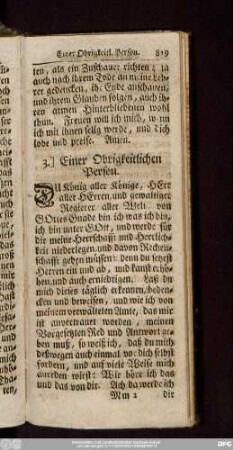 Einer Obrigkeitl. Person. 819
ten, als ein Zuschauer richten; ja
auch nach ihrem Tode an meine Leh-
rer gedencken, ihr Ende anschauen,
und ihrem Glauben folgen, auch ih-
ren armen Hinterbliebenen wohl
thun. Freuen will ich mich, wenn
ich mit ihnen selig werde, und dich
lobe und preise. Amen.
3.] Einer Obrigkeitlichen
Person.
DU König aller Könige, HErr
aller HErren, und gewaltiger
Regierer aller Welt. von
GOttes Gnade bin ich was ich bin,
ich bin unter GOtt, und werde für
dir meine Herrschafft und Herrlich-
keit niederlegen, und davon Rechen-
schafft geben müssen: denn du setzest
Herren ein und ab, und kanst erhö-
hen, und auch erniedigen. Laß du
mich dieses täglich erkennen, beden-
cken und beweisen, und wie ich von
meinem verwalteten Amte, das mir
ist anvertrauet worden, meinen
Vorgesetzten Red und Antwort ge-
ben muß, so weiß ich, daß du mich
deßwegen auch einmal vor dich selbst
fordern, und auf viele Weise mich
anreden wirst: Wie höre ich das
und das von dir. Ach da werde ich
Mm 2 dir